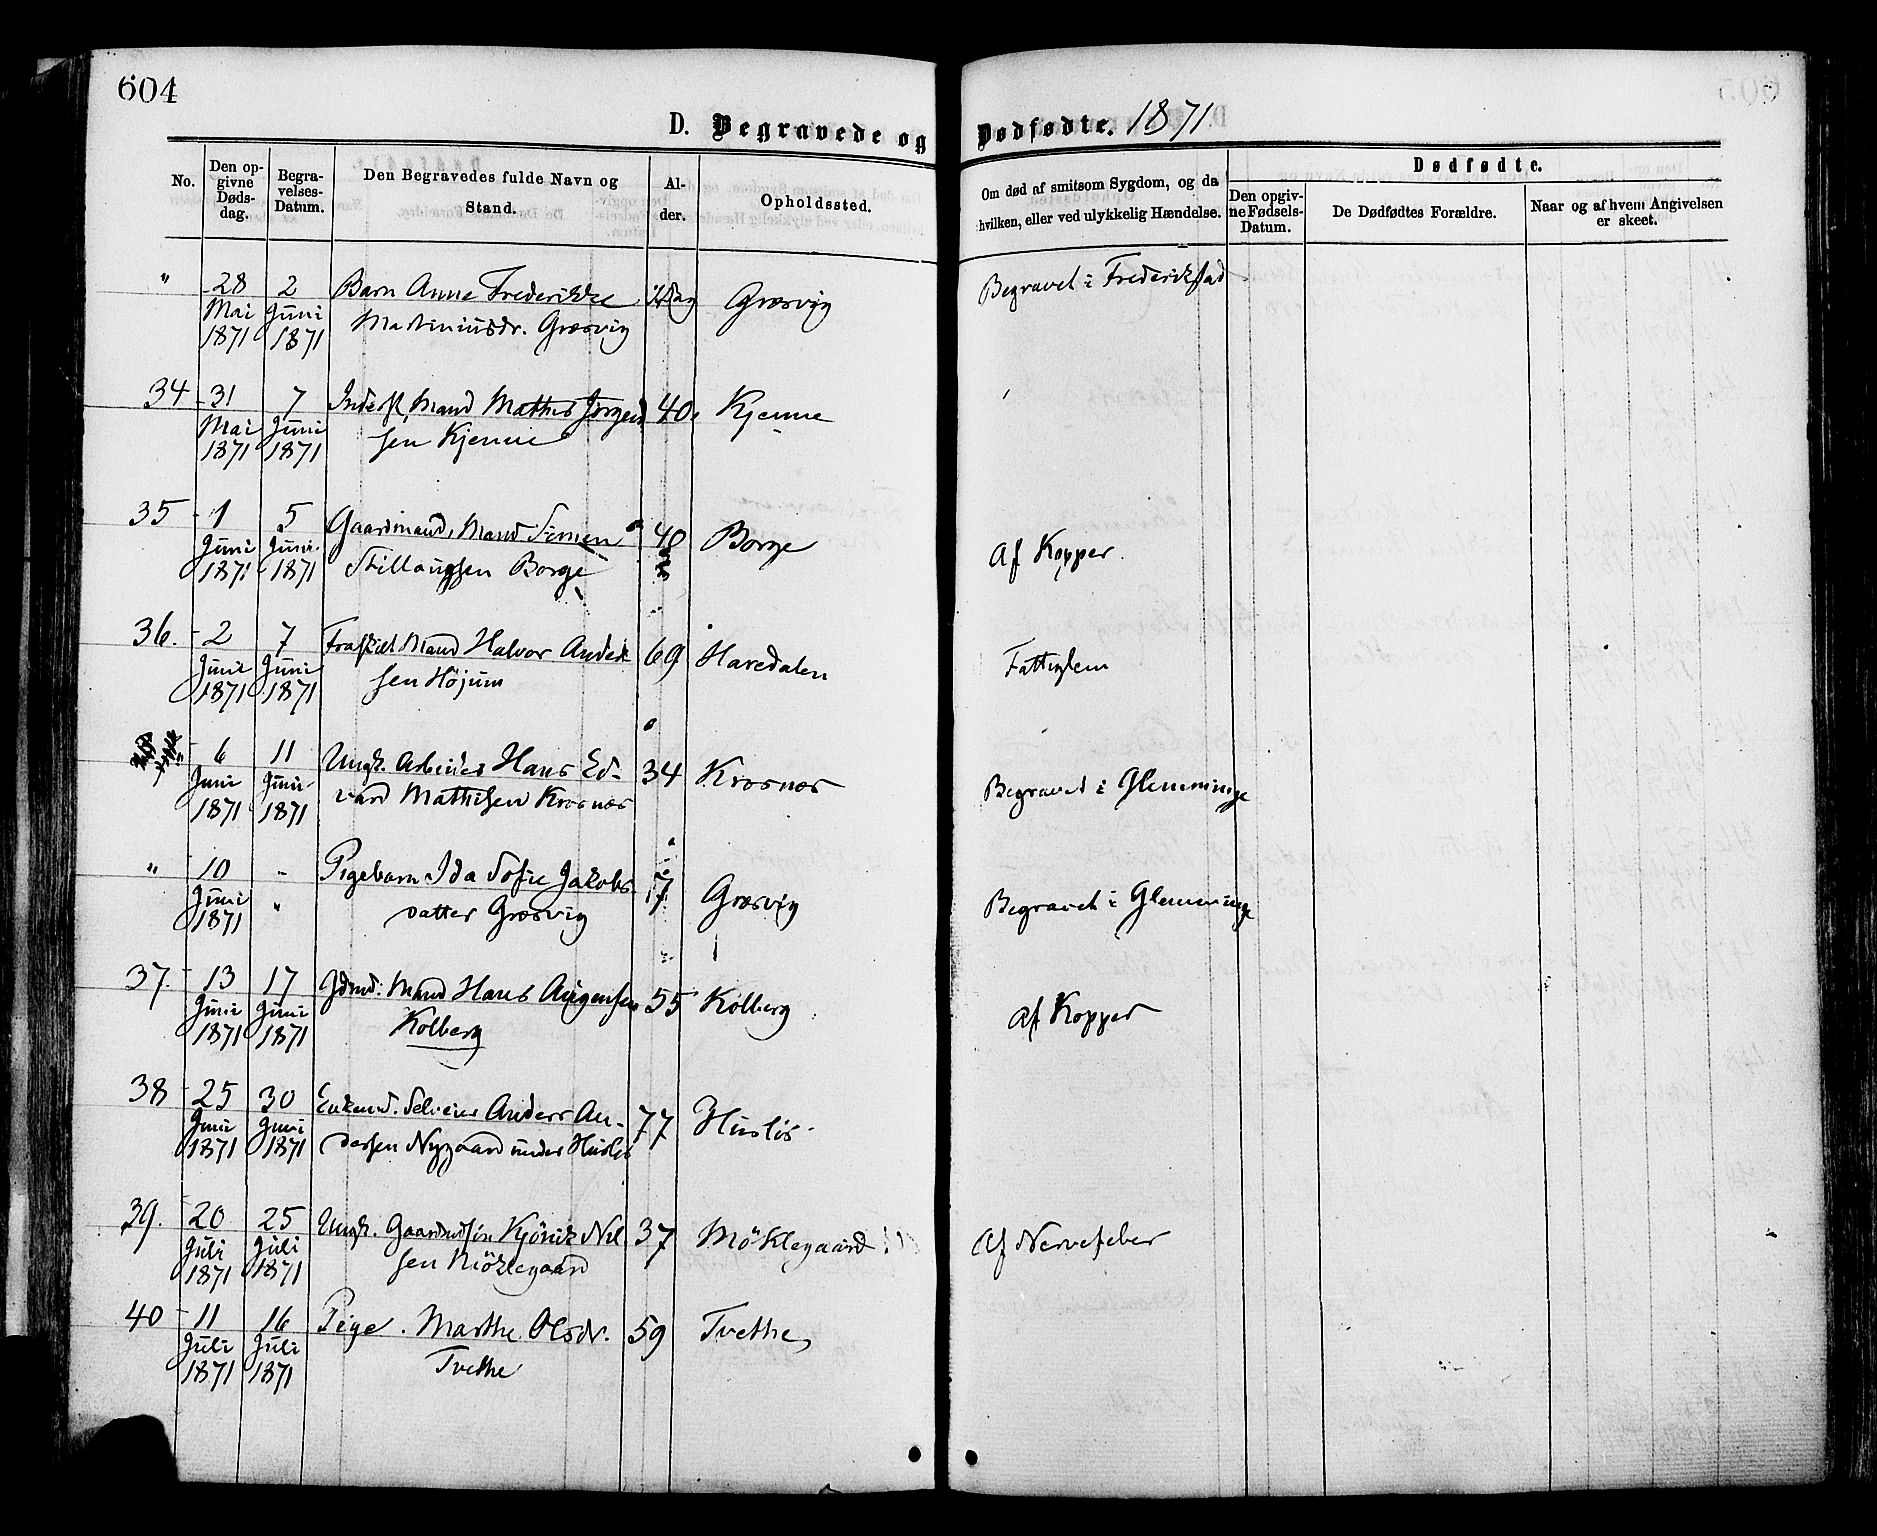 604
D. Begravede og Dødfødte. 1871.
No.
Den op-
givne
Døds-
dag.
Begra-
velses-
Datum.
Den Begravedes fulde Navn og
Stand.
Al-
der.
Opholdssted.
Om død af smitsom Sygdom, og da
hvilken, eller ved ulykkelig Hændelse.
Dødfødte.
Den opgiv-
ne Fødsels-
Datum.
De Dødfødtes Forældre.
Naar og af hvem Angivelsen
er skeet.
" 28 2 Barn Anne Frederikke Græsvig Begravet i Frederikstad
Mai Juni Martiniusdr. Græsvig
1871 1871
34 31 7 Inderst, Mand Mathis Jørgen 40 Kjenne
Mai Juni sen Kjenne
1871 1871
35 1 5 Gaardmand, Mand Simen 40 Borge Af Kopper.
Juni Juni Stillaugsen Borge
1871 1871
36. 2 7 Mand Halvor Ander 69 Haredalen Fattiglem
Juni Juni sen Højum
1871 1871
6 11 Ungk. Arbeider Hans Ed- 34 Krosnæs Begravet i Glemminge
Juni Juni vard Mathisen Krosnæs
1871 1871
" 10 - Pigebarn Ida Sofie Jakobs- 17 Græsvig Begravet i Glemminge
Juni " datter Græsvig
1871
37. 13 17 Gdmd. Mand Hans Augensen 55 Kolberg Af Kopper
Juni Juni Kolberg
1871 1871
38 25 30 Enkemd. Selveier Anders An- 77 Huslös
Juni Juni dersen Nygaard under Huslös
1871 1871
39. 20 25 Ungk. Gaardmdsön Kjönik Nil 37 Möklegaard Af Nervefeber
Juli Juli sen Möklegaard
1871 1871
40 11 16 Pige. Marthe Olsdr. 59 Tvethe
Juli Juli Tvethe
1871 1871